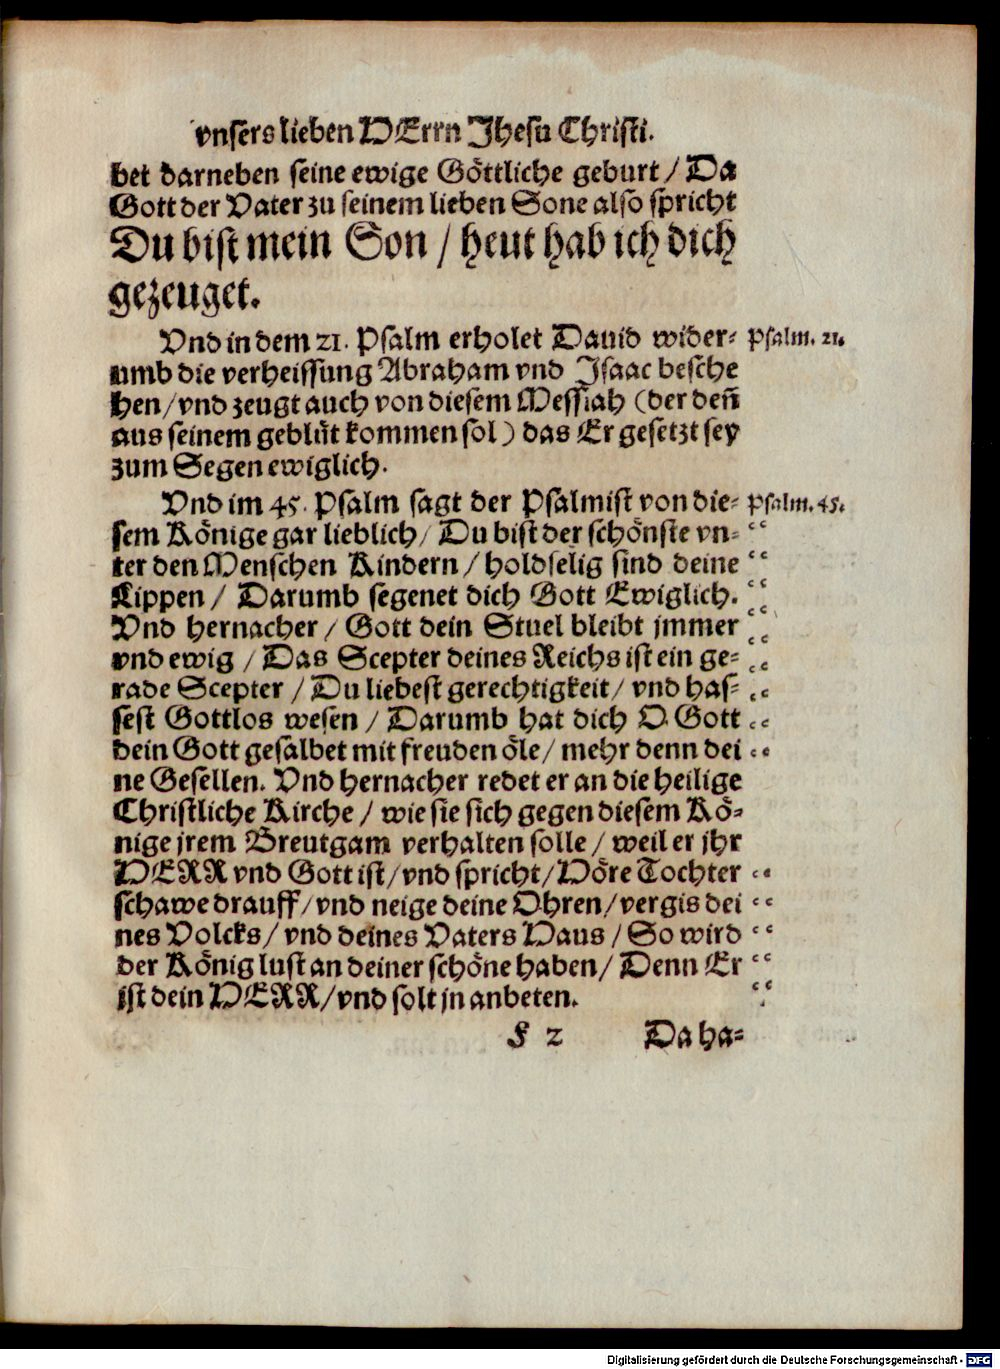 vnsers lieben HErrn Jhesu Christi.
bet darneben seine ewige Göttliche geburt / Da
Gott der Vater zu seinem lieben Sone also spricht
Du bist mein Son / heut hab ich dich
gezeuget.
Vnd in dem 21. Psalm erholet Dauid wider= Psalm. 21.
umb die verheissung Abraham vnd Isaac besche
hen / vnd zeugt auch von diesem Messiah (der deñ
aus seinem geblüt kommen sol) das Er gesetzt sey
zum Segen ewiglich.
Vnd im 45. Psalm sagt der Psalmist von die= Psalm. 45.
sem Könige gar lieblich / Du bist der schönste vn=
ter den Menschen Kindern / holdselig sind deine
Lippen / Darumb segenet dich Gott Ewiglich.
Vnd hernacher / Gott dein Stuel bleibt jmmer
vnd ewig / Das Scepter deines Reichs ist ein ge=
rade Scepter / Du liebest gerechtigkeit / vnd has=
sest Gottlos wesen / Darumb hat dich O Gott
dein Gott gesalbet mit freuden öle / mehr denn dei
ne Gesellen. Vnd hernacher redet er an die heilige
Christliche Kirche / wie sie sich gegen diesem Kö=
nige jrem Breutgam verhalten solle / weil er jhr
HERR vnd Gott ist / vnd spricht / Höre Tochter
schawe drauff / vnd neige deine Ohren / vergis dei
nes Volcks / vnd deines Vaters Haus / So wird
der König lust an deiner schöne haben / Denn Er
ist dein HERR / vnd solt jn anbeten.
F 2 Da ha=
Digitalisierung gefördert durch die Deutsche Forschungsgemeinschaft - DFG